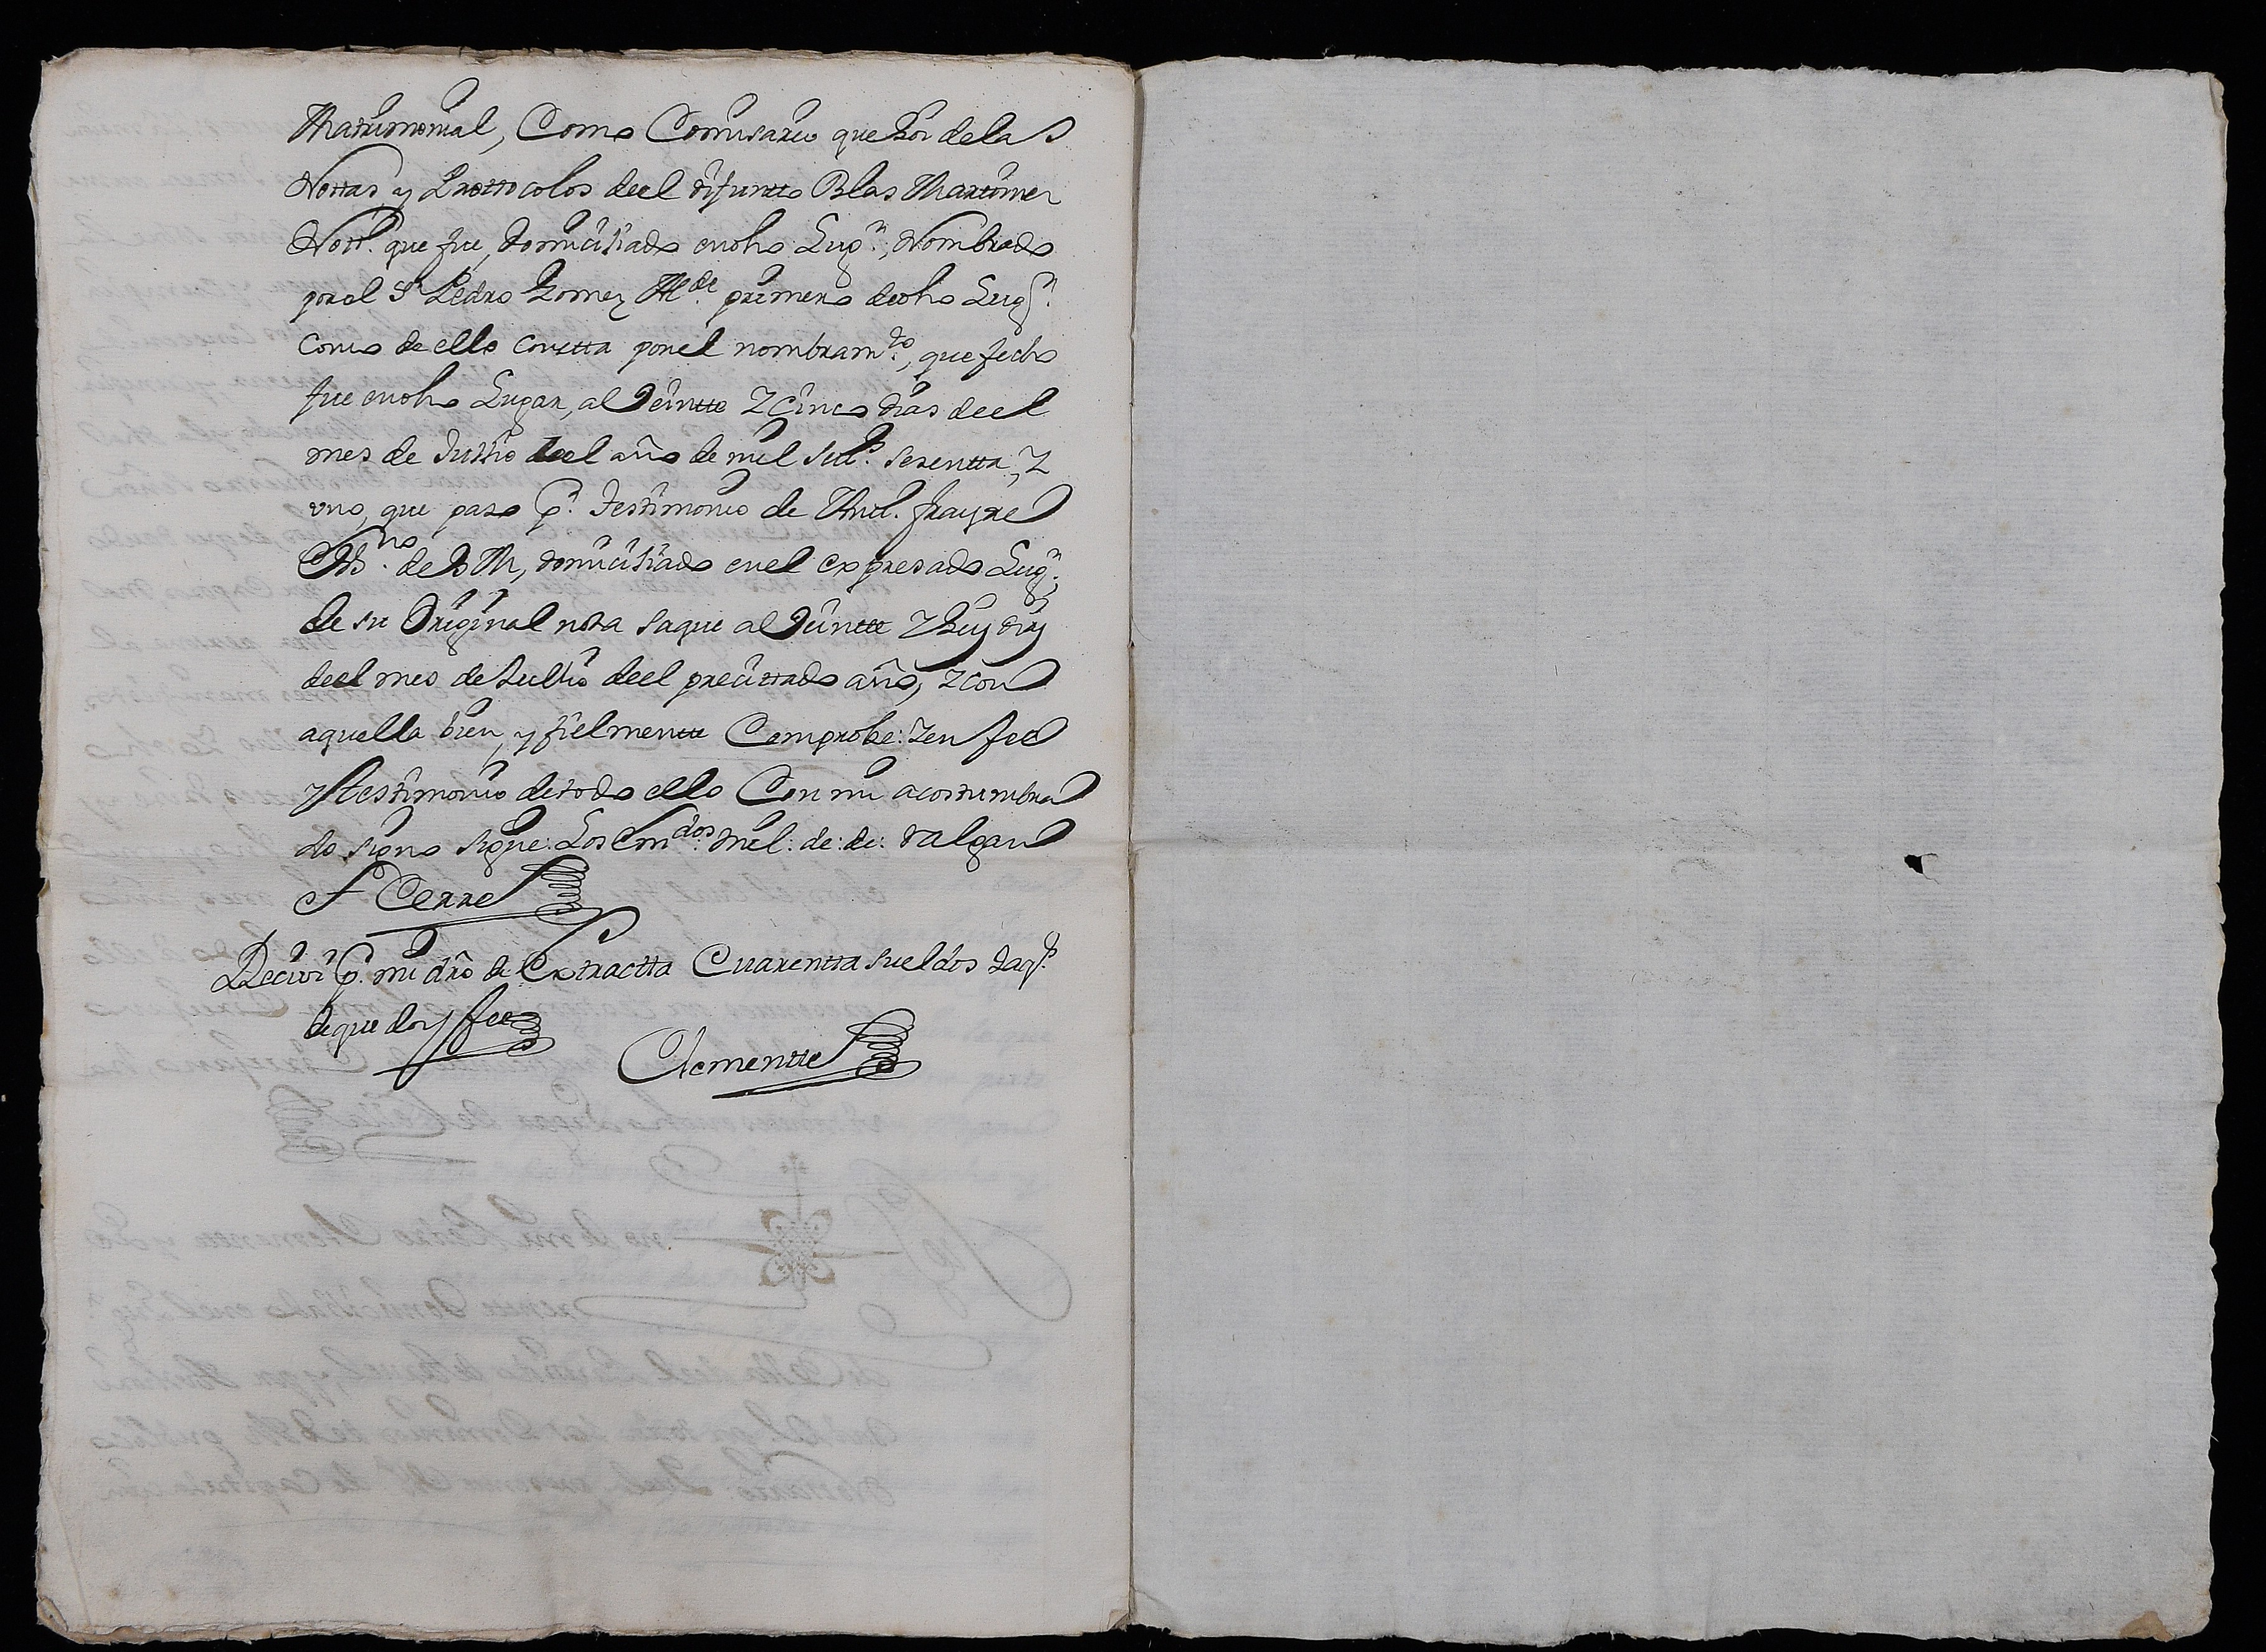 Matrimonial, Como Comisario que soi de las
Nottas, y Prottocolos deel difuntto Blas Martinez
Nott.º que fue, domiciliado en dho Lug.r, Nombrado
por el S.r Pedro Gomez Al.de primero de dho Lug.r
como de ello constta por el nombram.to, que fecho
fue en dho Lugar, al Veintte y Cinco dias deel
mes de Julio deel año de mil sett.s sesentta, y
uno, que paso p.r Testimonio de Man.l Frayre
Ess.no de S M, domiciliado en el expresado Lug.r,
de su Original nota saque al Veintte y seis dias
deel mes de Jullio deel precittado año, y con
aquella bien, y fielmentte Comprobe: y en fee
y testimonio de todo ello Con mi acostumbra
do signo signe: Los Em.dos: mil: de: de: valgan
y Cerre
Recivi p.r mi dro de Extractta Cuarentta sueldos Jaq.s
de que doy fee
Clementte